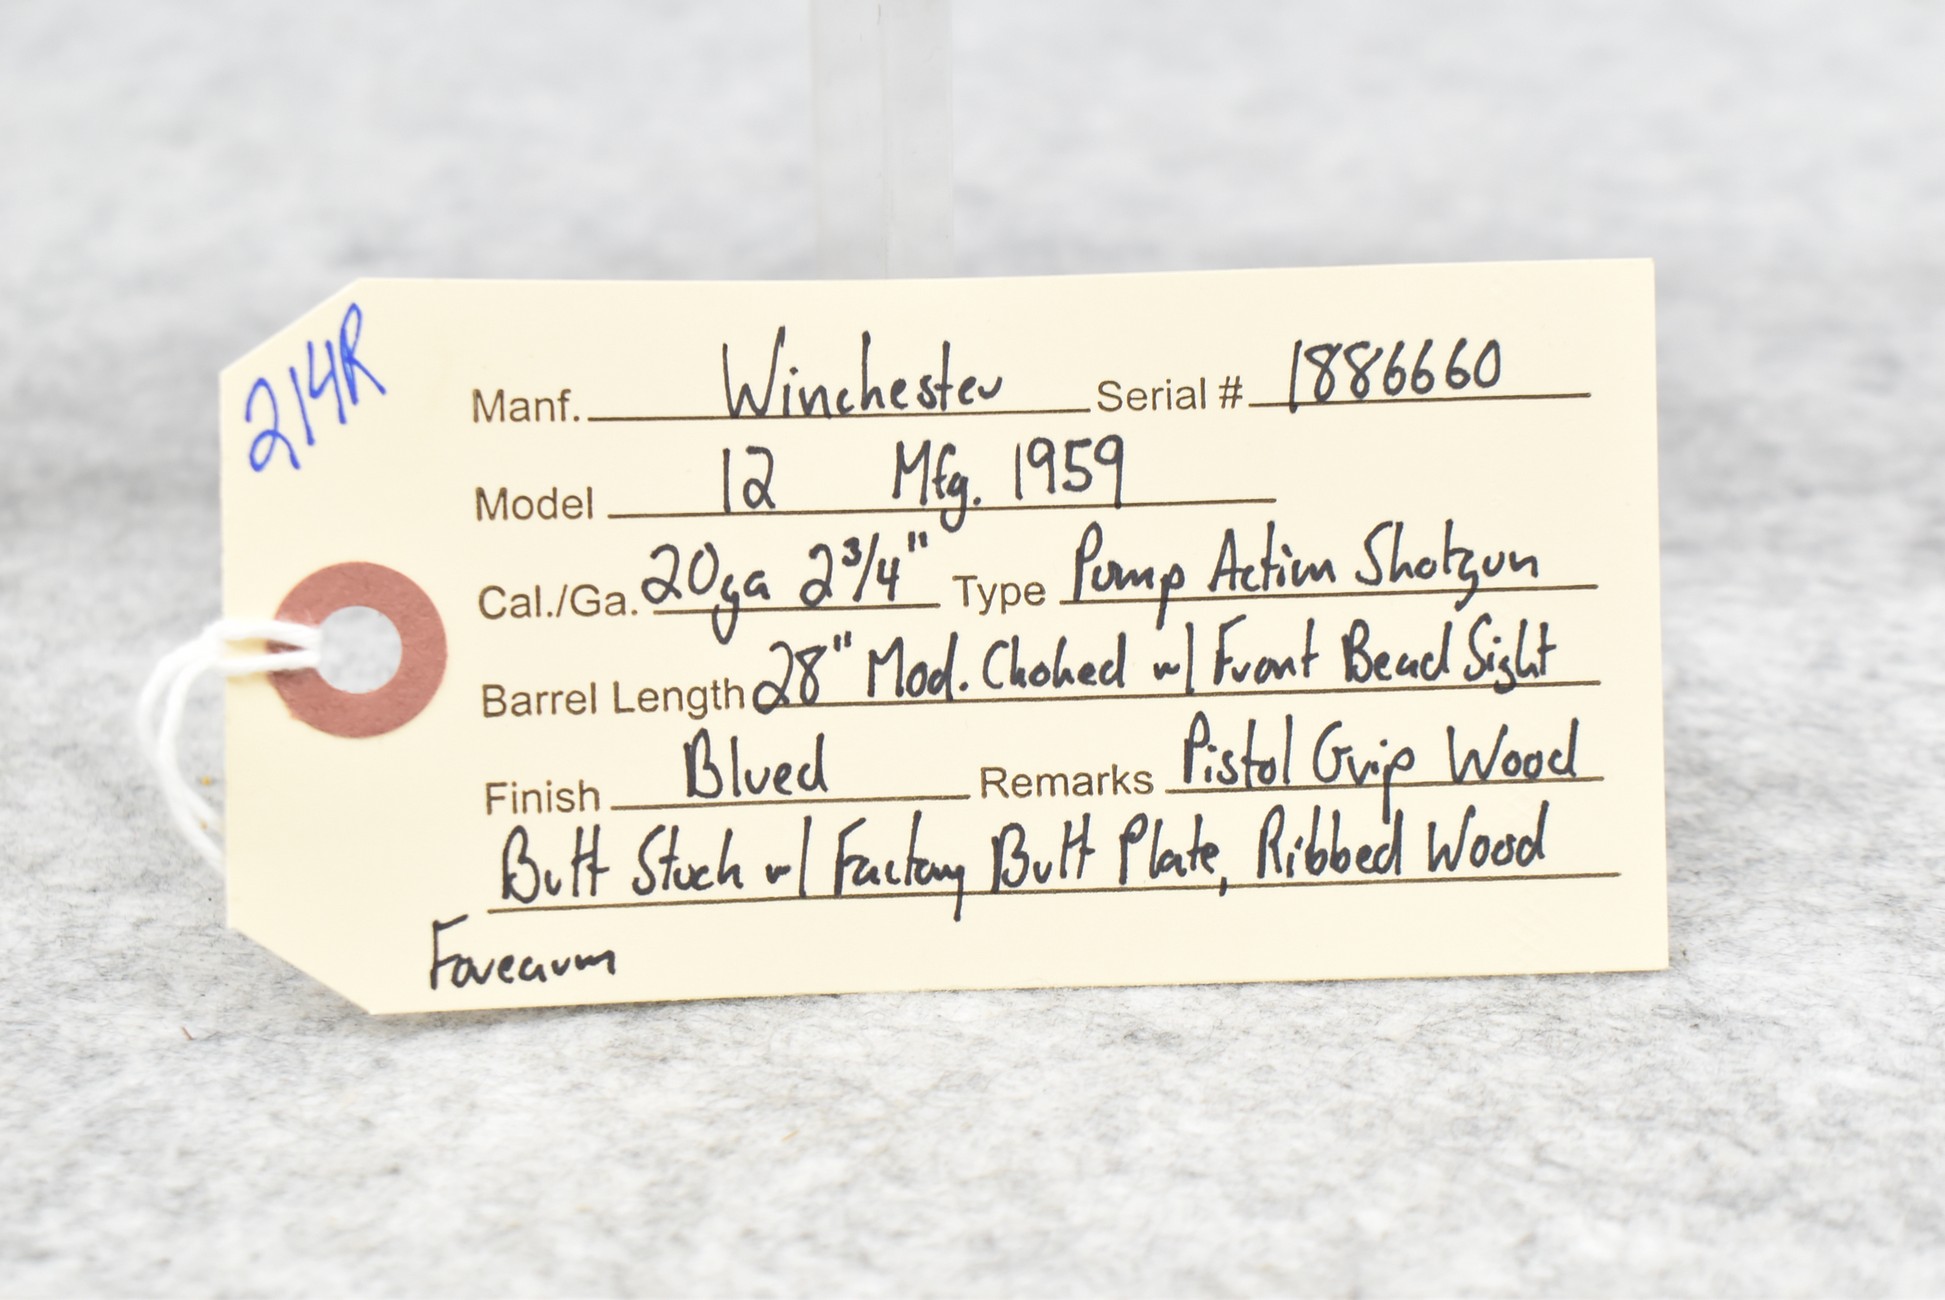 214R
Manf. Winchester Serial # 1886660
Model 12 Mfg. 1959
Cal./Ga. 20ga 2 3/4" Type Pump Action Shotgun
Barrel Length 28" Mod. Choked w/ Front Bead Sight
Finish Blued Remarks Pistol Grip Wood
Butt Stock w/ Factory Butt Plate, Ribbed Wood
Forearm